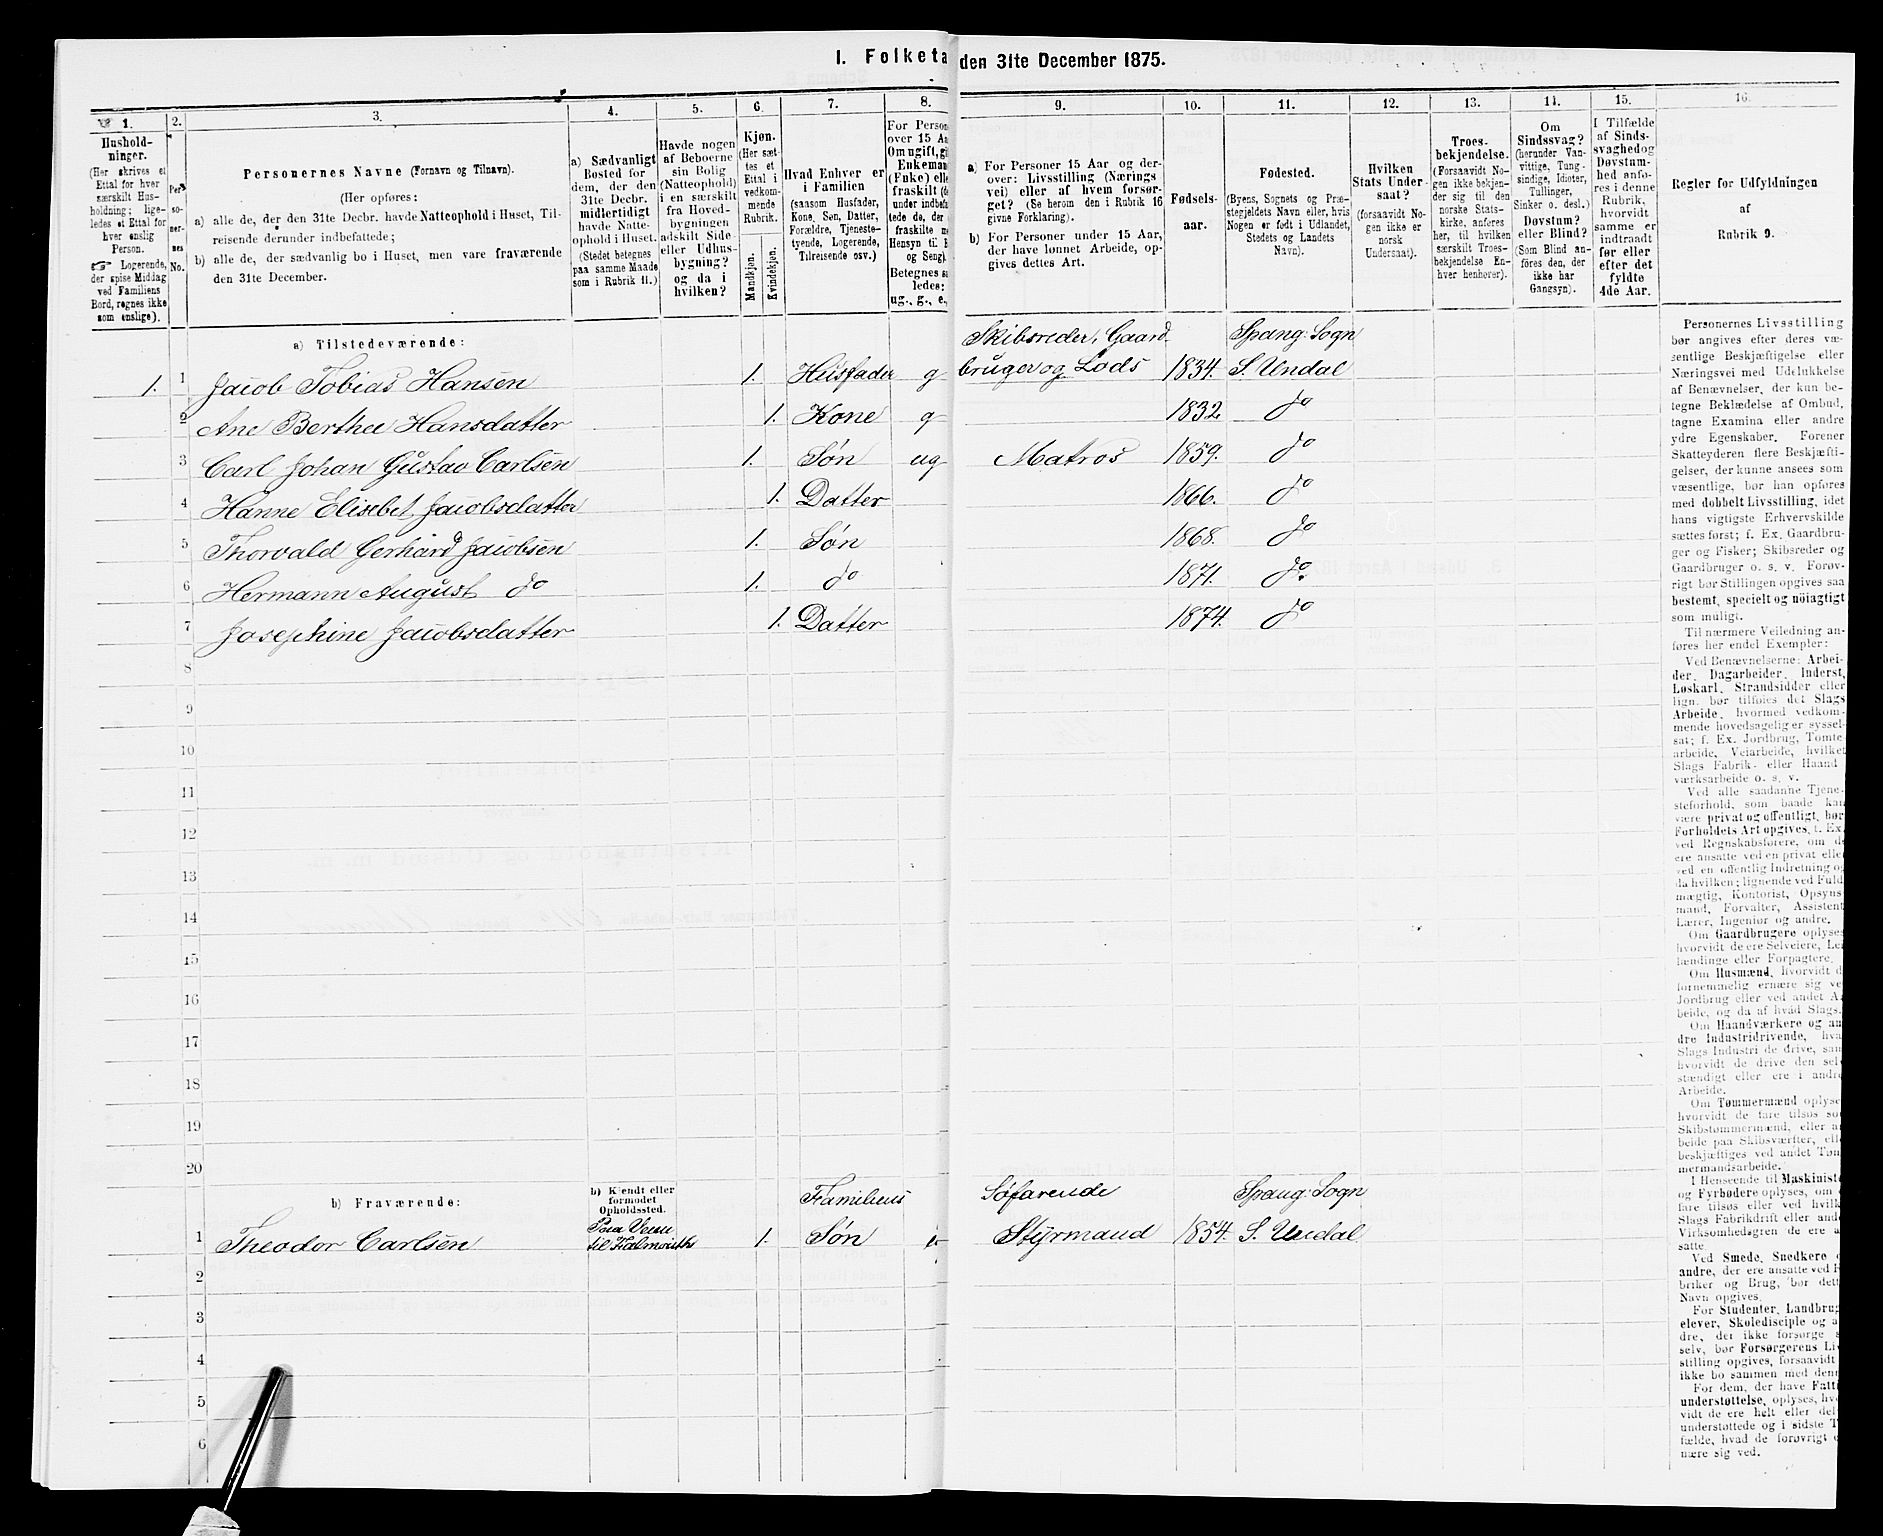 I. Folketa den 31te December 1875.
1. 2. 3. 4. 5. 6. 7. 8. 9. 10. 11. 12. 13. 14. 15. 16.
Hushold-
ninger.
(Her skrives et
Ettal for hver
særskilt Hus-
holdning; lige-
ledes et Ettal for
hver enslig
Person.
☞ Logerende,
der spise Middag
ved Familiens
Bord, regnes ikke
som enslige).
Per-
so-
ner-
nes
No.
Personernes Navne (Fornavn og Tilnavn).
(Her opføres:
a) alle de, der den 31te Decbr. havde Natteophold i Huset, Til-
reisende derunder indbefattede;
b) alle de, der sædvanlig bo i Huset, men vare fraværende
den 31te December.
a) Sædvanligt
Bosted for
dem, der den
31te Decbr.
midlertidigt
havde Natte-
ophold i Huset.
(Stedet betegnes
paa samme Maade
som i Rubrik 11.)
Havde nogen
af Beboerne
sin Bolig
(Natteophold)
i en særskilt
fra Hoved-
bygningen
adskilt Side-
eller Udhus-
bygning?
og da i
hvilken?
Kjøn.
(Her sæt-
tes et
Ettal i
vedkom-
mende
Rubrik.
Mandkjøn.
Kvindekjøn.
Hvad Enhver er
i Familien
(saasom Husfader,
Kone, Søn, Datter,
Forældre, Tjeneste-
tyende, Logerende,
Tilreisende osv.)
For Person
over 15 Aa
Om ugift, gi
Enkeman
(Enke) elle
fraskilt (de
under indbefa
tede de, der
fraskilte m
Hensyn til B
og Seng).
Betegnes sa
ledes:
ug., g., e.,
a) For Personer 15 Aar og der-
over: Livsstilling (Nærings
vei) eller af hvem forsør-
get? (Se herom den i Rubrik 16
givne Forklaring).
b) For Personer under 15 Aar,
der have lønnet Arbeide, op-
gives dettes Art.
Fødsels-
aar.
Fødested.
(Byens, Sognets og Præ-
stegjeldets Navn eller, hvis
Nogen er født i Udlandet,
Stedets og Landets
Navn).
Hvilken
Stats Under-
saat?
(forsaavidt No-
gen ikke er
norsk
Undersaat).
Troes-
bekjendelse.
(Forsaavidt No-
gen ikke bekjen-
der sig til den
norske Stats-
kirke, anføres
her, til hvilken
særskilt Troes-
bekjendelse En-
hver henhører).
Om
Sindssvag?
(herunder Van-
vittige, Tung-
sindige, Idioter,
Tullinger,
Sinker o. desl.)
Døvstum?
eller Blind?
(Som Blind an-
føres den, der
ikke har
Gangsyn).
I Tilfælde
af Sinds-
svaghed og
Døvstum-
hed anfø-
res i denne
Rubrik,
hvorvidt
samme er
indtraadt
før eller
efter det
fyldte
4de Aar.
Regler for Udfyldningen
af
Rubrik 9.
a) Tilstedeværende:
Skibsreder, Gaard- Spang: Sogn
1. 1 Jacob Tobias Hansen 1. Husfader g bruger og Lods 1834. S. Undal
2 Ane Berthee Hansdatter 1. Kone g 1832 do
3 Carl Johan Gustav Carlsen 1. Søn ug Matros 1859. do
4 Hanne Elisebet Jacobsdatter 1. Datter 1866. do
5 Thorvald Gerhard Jacobsen 1. Søn 1868. do
6 Hermann August do 1. do 1871. do
7 Josephine Jacobsdatter 1. Datter 1874. do
8
9
10
11
12
13
14
15
16
17
18
19
20
b) Fraværende:
b) Kjendt eller
formodet
Opholdssted.
Familiens Søfarende Spang: Sogn
1 Theodor Carlsen til Falmouth 1. Søn Styrmand 1854. S. Undal
2
3
4
5
6
Personernes Livsstilling
bør angives efter deres væ-
sentlige Beskjæftigelse eller
Næringsvei med Udelukkelse
af Benævnelser, der kun be-
tegne Beklædelse af Ombud,
tagne Examina eller andre
ydre Egenskaber. Forener
Skatteyderen flere Beskjæfti-
gelser, der kunne ansees som
væsentlige, bør han opføres
med dobbelt Livsstilling, idet
hans vigtigste Erhvervskilde
sættes først; f. Ex. Gaardbru-
ger og Fisker; Skibsreder og
Gaardbruger o. s. v. Forøv-
rigt bør Stillingen opgives saa
bestemt, specielt og nöiagtigt
som muligt.
Til nærmere Veiledning an-
føres her endel Exempler:
Ved Benævnelserne: Arbei-
der, Dagarbeider, Inderst,
Løskarl, Strandsidder eller
lign. bør tilføies det Slags
Arbeide, hvormed vedkom-
mende hovedsagelig er syssel-
sat; f. Ex. Jordbrug, Tomte-
arbeide, Veiarbeide, hvilket
Slags Fabrik- eller Haand-
værksarbeide o. s. v.
Ved alle saadanne Tjene-
steforhold, som baade kan
være privat og offentligt, bør
Forholdets Art opgives, f. Ex.
ved Regnskabsførere, om d
ere ansatte ved en privat elle
ved en offentlig Indretning og
da hvilken; lignende ved Fuld-
mægtig, Kontorist, Opsyns-
mand, Forvalter, Assistent
Lærer, Ingeniør og andre.
Om Gaardbrugere oplyse
hvorvidt de ere Selveiere, Le
lændinge eller Forpagtere.
Om Husmænd, hvorvidt d
fornemmelig ernære sig ve
Jordbrug eller ved andet A
beide, og da af hvad Slags.
Om Haandværkere og an
dre Industridrivende, hva
Slags Industri de drive, sam
hvorvidt de drive den sel
stændigt eller ere i andre
Arbeide.
Om Tømmermænd oplyse
hvorvidt de fare tilsøs so
Skibstømmermænd, eller a
beide paa Skibsværfter, elle
beskjæftiges ved andet Tøm
mermandsarbeide.
I Henseende til Maskiniste
og Fyrbødere oplyses, om d
fare tilsøs eller ved hvilk
Slags Fabrikdrift eller ande
Virksomhedsgren de ere a
satte.
Ved Smede, Snedkere o
andre, der ere ansatte ved F
briker og Brug, bør dette
Navn opgives.
For Studenter, Landbrug
elever, Skoledisciple og a
dre, der ikke forsørge s
selv, bør Forsørgerens Liv
stilling opgives, forsaavidt
ikke bo sammen med denn
For dem, der have Fatti
understøttelse, oplyses, hvo
vidt de ere helt eller del
understøttede og i sidste T
fælde, hvad de forøvrigt e
nære sig ved.